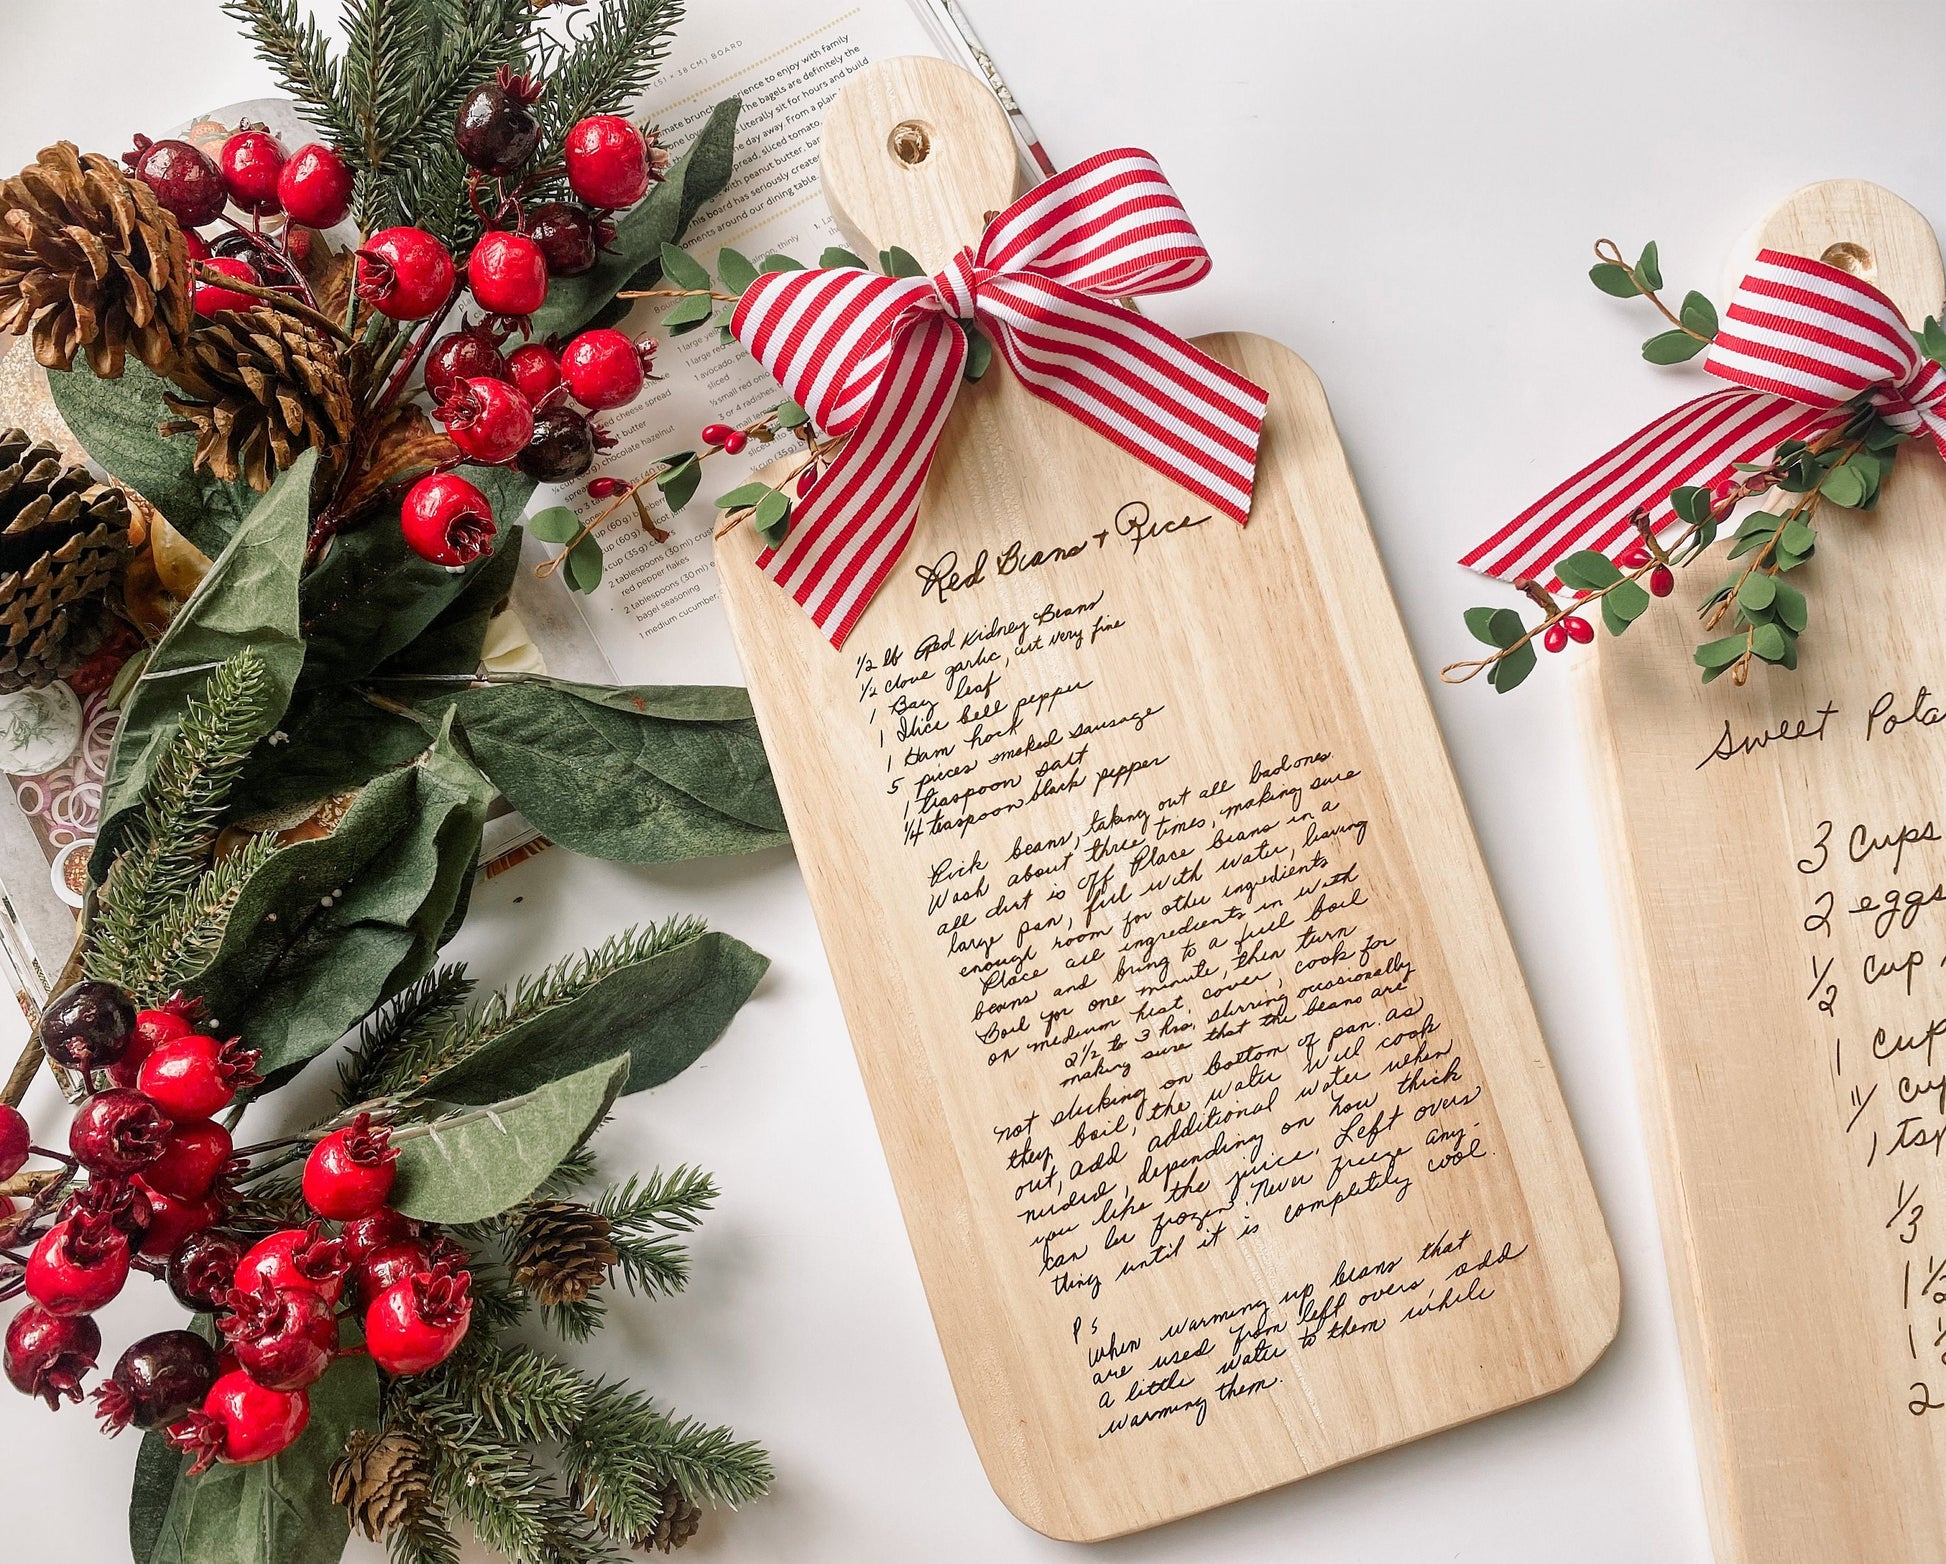 (51 × 38 CM) BOARD
experience to enjoy with family
The bagels are definitely the
literally sit for hours and build
day away. From a plain
spread, sliced tomato,
with peanut butter,
this board has seriously created
moments around our dining table.
salmon, thinly
1 large
1 large red
1 avocado,
sliced
½ small red onion
3 or 4 radishes,
cheese spread
butter
chocolate hazelnut
¼ cup (35g)
2 tablespoons (30 ml)
red pepper flakes
2 tablespoons (30 ml)
bagel seasoning
1 medium cucumber,
Red Beans + Rice
1/2 lb Red Kidney Beans
1/2 clove garlic, cut very fine
1 Bay leaf
1 Slice bell pepper
1 Ham hock
5 pieces smoked sausage
1 teaspoon salt
1/4 teaspoon black pepper
Pick beans, taking out all bad ones.
Wash about three times, making sure
all dirt is off Place beans in a
large pan, fill with water, leaving
enough room for other ingredients
Place all ingredients in with
beans and bring to a full boil
Boil for one minute, then turn
on medium heat, cover, cook for
2 1/2 to 3 hrs. stirring occasionally
making sure that the beans are
not sticking on bottom of pan. As
they boil, the water will cook
out, add additional water when
needed, depending on how thick
you like the juice. Left overs
can be frozen. Never freeze any-
thing until it is completely cool.
P S
When warming up beans that
are used from left overs, add
a little water to them while
warming them.
Sweet Pota
3 cups
2 eggs
1/2 cup
1 cup
1 tsp
1/3
2